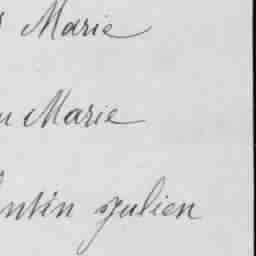 Marie
u Marie
ntin Julien